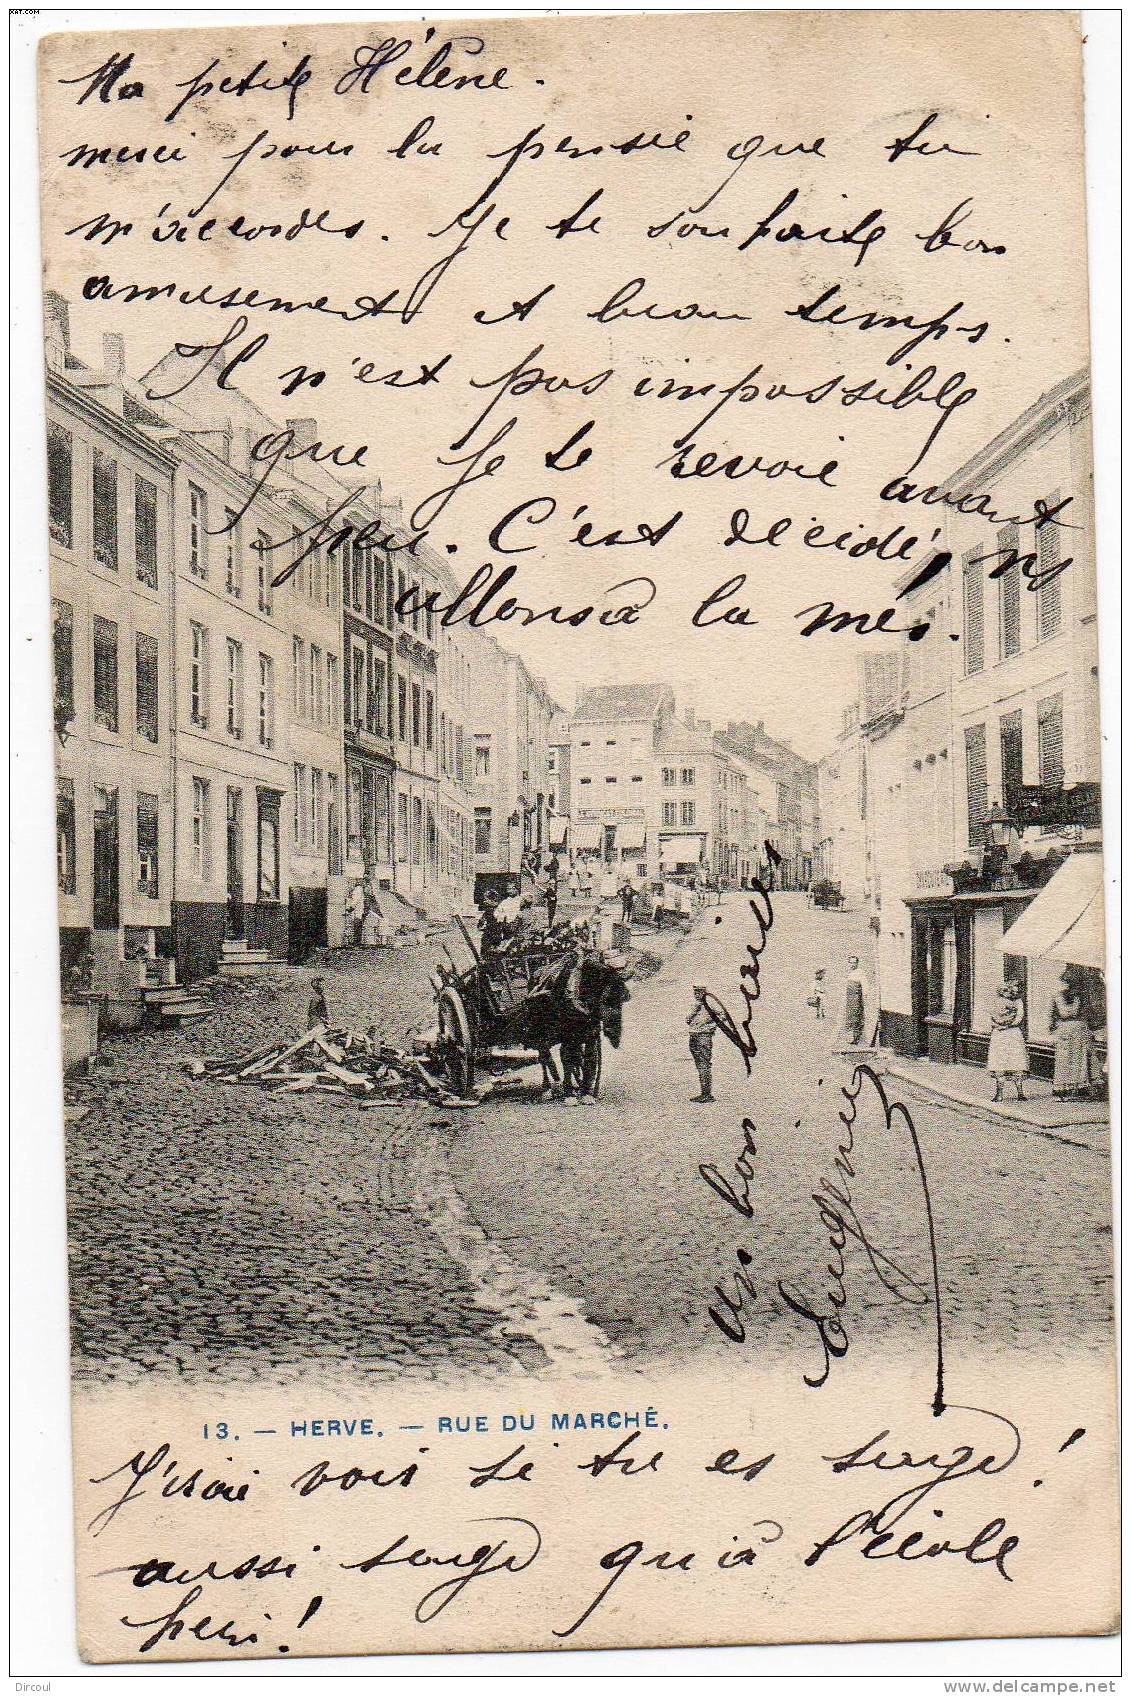 Ma petite Hélène.
merci pour la pensée que tu
m'accordes. Je te souhaite bon
amusement et beau temps.
Il n'est pas impossible
que je te revoie avant
peu. C'est décidé, ns
allons à la mer.
Un bon baiser
Eugénie
13. — HERVE. — RUE DU MARCHÉ.
J'irai voir si tu es sage!
aussi sage qu'à l'école
hein!
Dircoul
www.delcampe.net